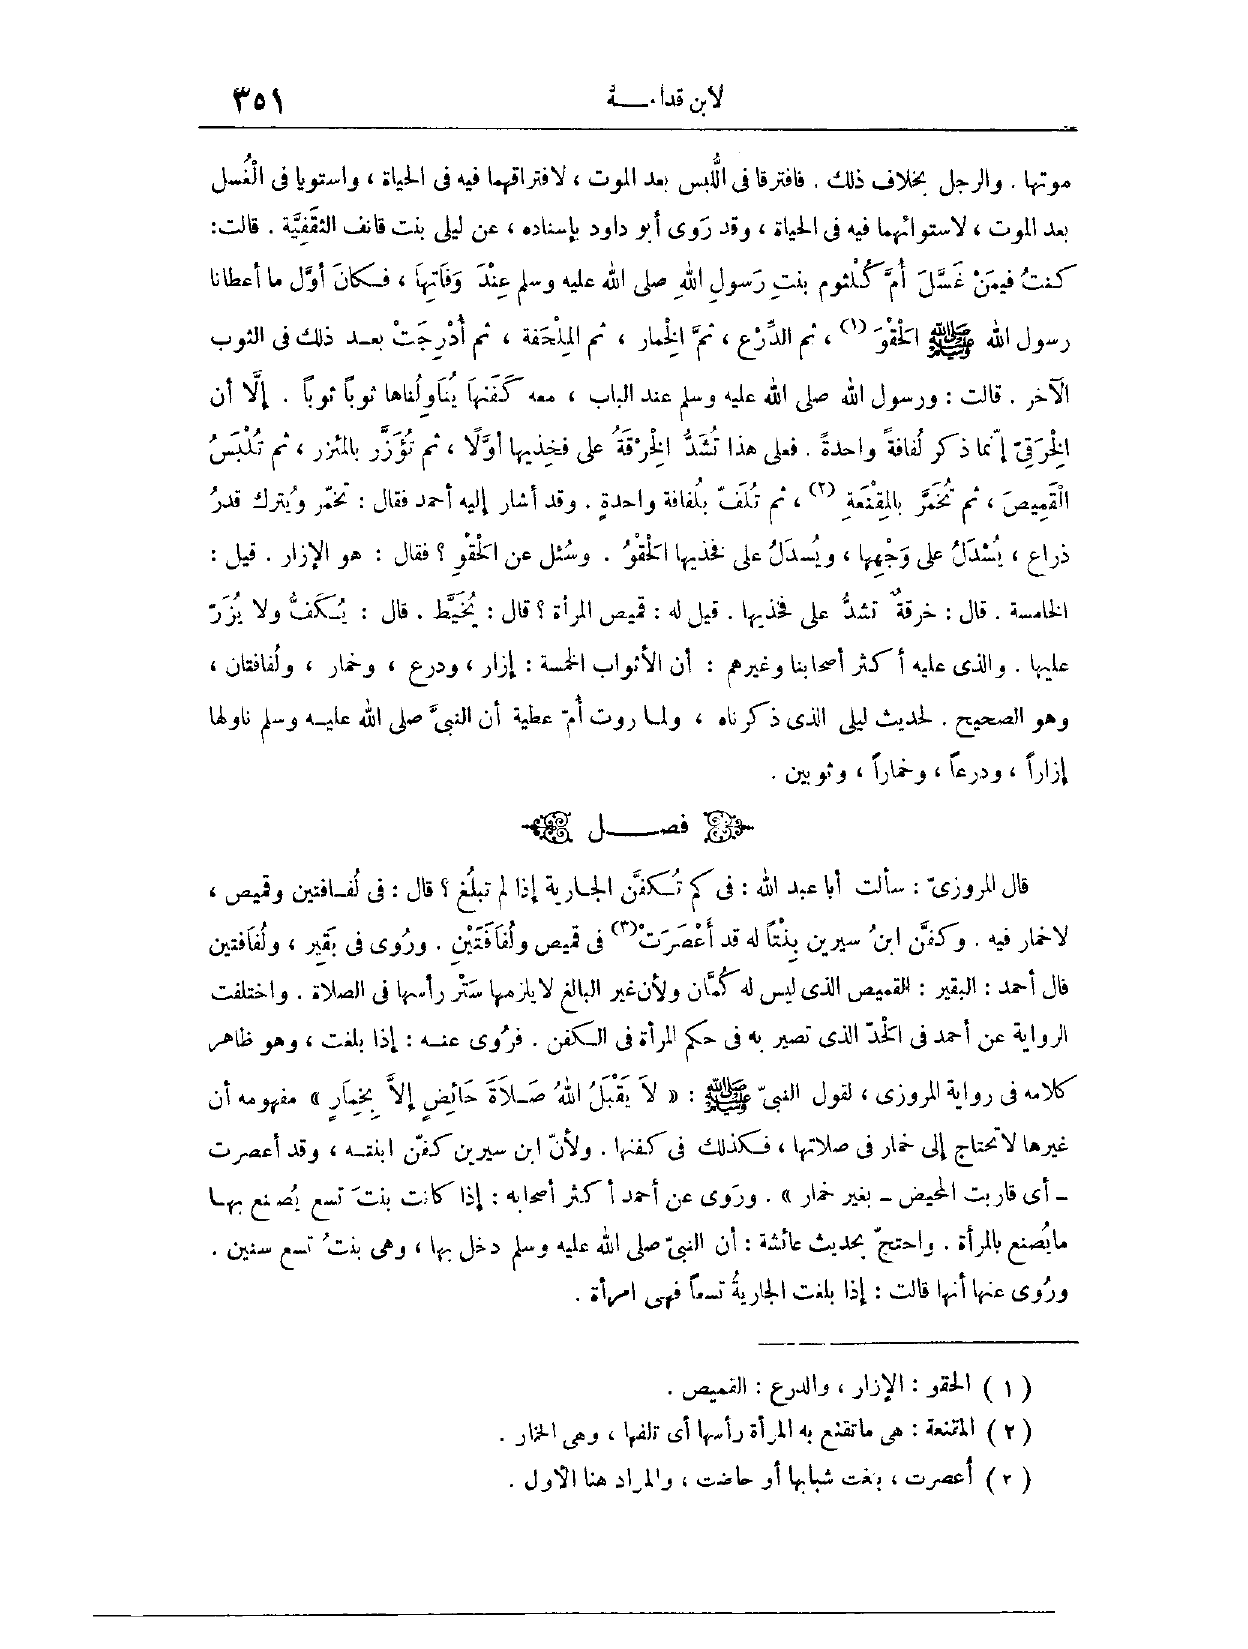 لابن قدامة
٣٥١
موتها . والرجل بخلاف ذلك . فافترقا فى اللُّبس بعد الموت ، لافتراقهما فيه فى الحياة ، واستويا فى الغُسل
بعد الموت ، لاستوائهما فيه فى الحياة ، وقد رَوى أبو داود بإسناده ، عن ليلى بنت قانف الثقَفِيَّة . قالت:
كنتُ فيمَنْ غَسَّلَ أُمَّ كُلْثوم بنتِ رَسولِ اللهِ صلى الله عليه وسلم عِنْدَ وَفَاتِهاَ ، فَكانَ أوَّل ما أعطانا
رسول الله ﷺ الْحَقْوَ (١) ، ثم الدِّرْع ، ثمَّ الخِمار ، ثم المِلْحَفة ، ثم أُدْرِجَتْ بعد ذلك فى الثوب
الآخر . قالت : ورسول الله صلى الله عليه وسلم عند الباب ، معه كَفَنهاَ يُناَولُناها ثوباً ثوباً . إلَّا أن
الِخرَقِىّ إنما ذكر لُفافةً واحدةً . فعلى هذا تُشَدُّ الِخرْقَةُ على فخِذيها أوَّلًا ، ثم تُؤَزَّر بالمئزر ، ثم تُلْبَسُ
الْقَمِيصَ ، ثم تُخَمَّر بالمِقْنَعَةِ (٢) ، ثم تُلَفّ بلُفافة واحدةٍ . وقد أشار إليه أحمد فقال : تخمّر ويُترك قدرُ
ذراع ، يُسْدَلُ على وَجْهِها ، ويُسدَلُ على فخذيها الحَقْوُ . وسُئل عن الحَقْوِ ؟ فقال : هو الإزار . قيل :
الخامسة . قال : خرقةٌ تشدُّ على فخذيها . قيل له : قميص المرأة ؟ قال : يُخَيَّط . قال : يُكَفُّ ولا يُزَرّ
عليها . والذى عليه أكثر أصحابنا وغيرهم : أن الأثواب الخمسة : إزار ، ودرع ، وخمار ، ولُفافتان ،
وهو الصحيح . لحديث ليلى الذى ذكرناه ، ولما روت أُمّ عطية أن النبىَّ صلى الله عليه وسلم ناولها
إزاراً ، ودرعاً ، وخماراً ، وثوبين .
فصل
قال المروزىّ : سألت أبا عبد الله : فى كم تُكفَّن الجارية إذا لم تبلُغ ؟ قال : فى لُفافتين وقميص ،
لاخمار فيه . وكفَّن ابنُ سيرين بِنْتاً له قد أَعْصَرَت(٣) فى قميص ولُفَافَتَيْنِ . ورُوى فى بَقِير ، ولُفافتين
قال أحمد : البقير : القميص الذى ليس له كُمَّان ولأن غير البالغ لايلزمها سَتْر رأسها فى الصلاة . واختلفت
الرواية عن أحمد فى الحَدّ الذى تصير به فى حكم المرأة فى الكفن . فرُوى عنه : إذا بلغت ، وهو ظاهر
كلامه فى رواية المروزى ، لقول النبىّ ﷺ : « لاَ يَقْبَلُ اللهُ صَلاَةَ حَائِضٍ إلاَّ بِخِمَارٍ » مفهومه أن
غيرها لاتحتاج إلى خمار فى صلاتها ، فكذلك فى كفنها . ولأنّ ابن سيرين كفّن ابنته ، وقد أعصرت
ــ أى قاربت المحيض ــ بغير خمار » . ورَوى عن أحمد أكثر أصحابه : إذا كانت بنتَ تسع يُصنع بها
مايُصنع بالمرأة . واحتجّ بحديث عائشة : أن النبىّ صلى الله عليه وسلم دخل بها ، وهى بنتُ تسع سنين .
ورُوى عنها أنها قالت : إذا بلغت الجاريةُ تسعاً فهى امرأة .
( ١ ) الحقو : الإزار ، والدرع : القميص .
( ٢ ) المقنعة : هى ماتقنع به المرأة رأسها أى تلفها ، وهى الخمار .
( ٣ ) أعصرت ، بلغت شبابها أو حاضت ، والمراد هنا الأول .